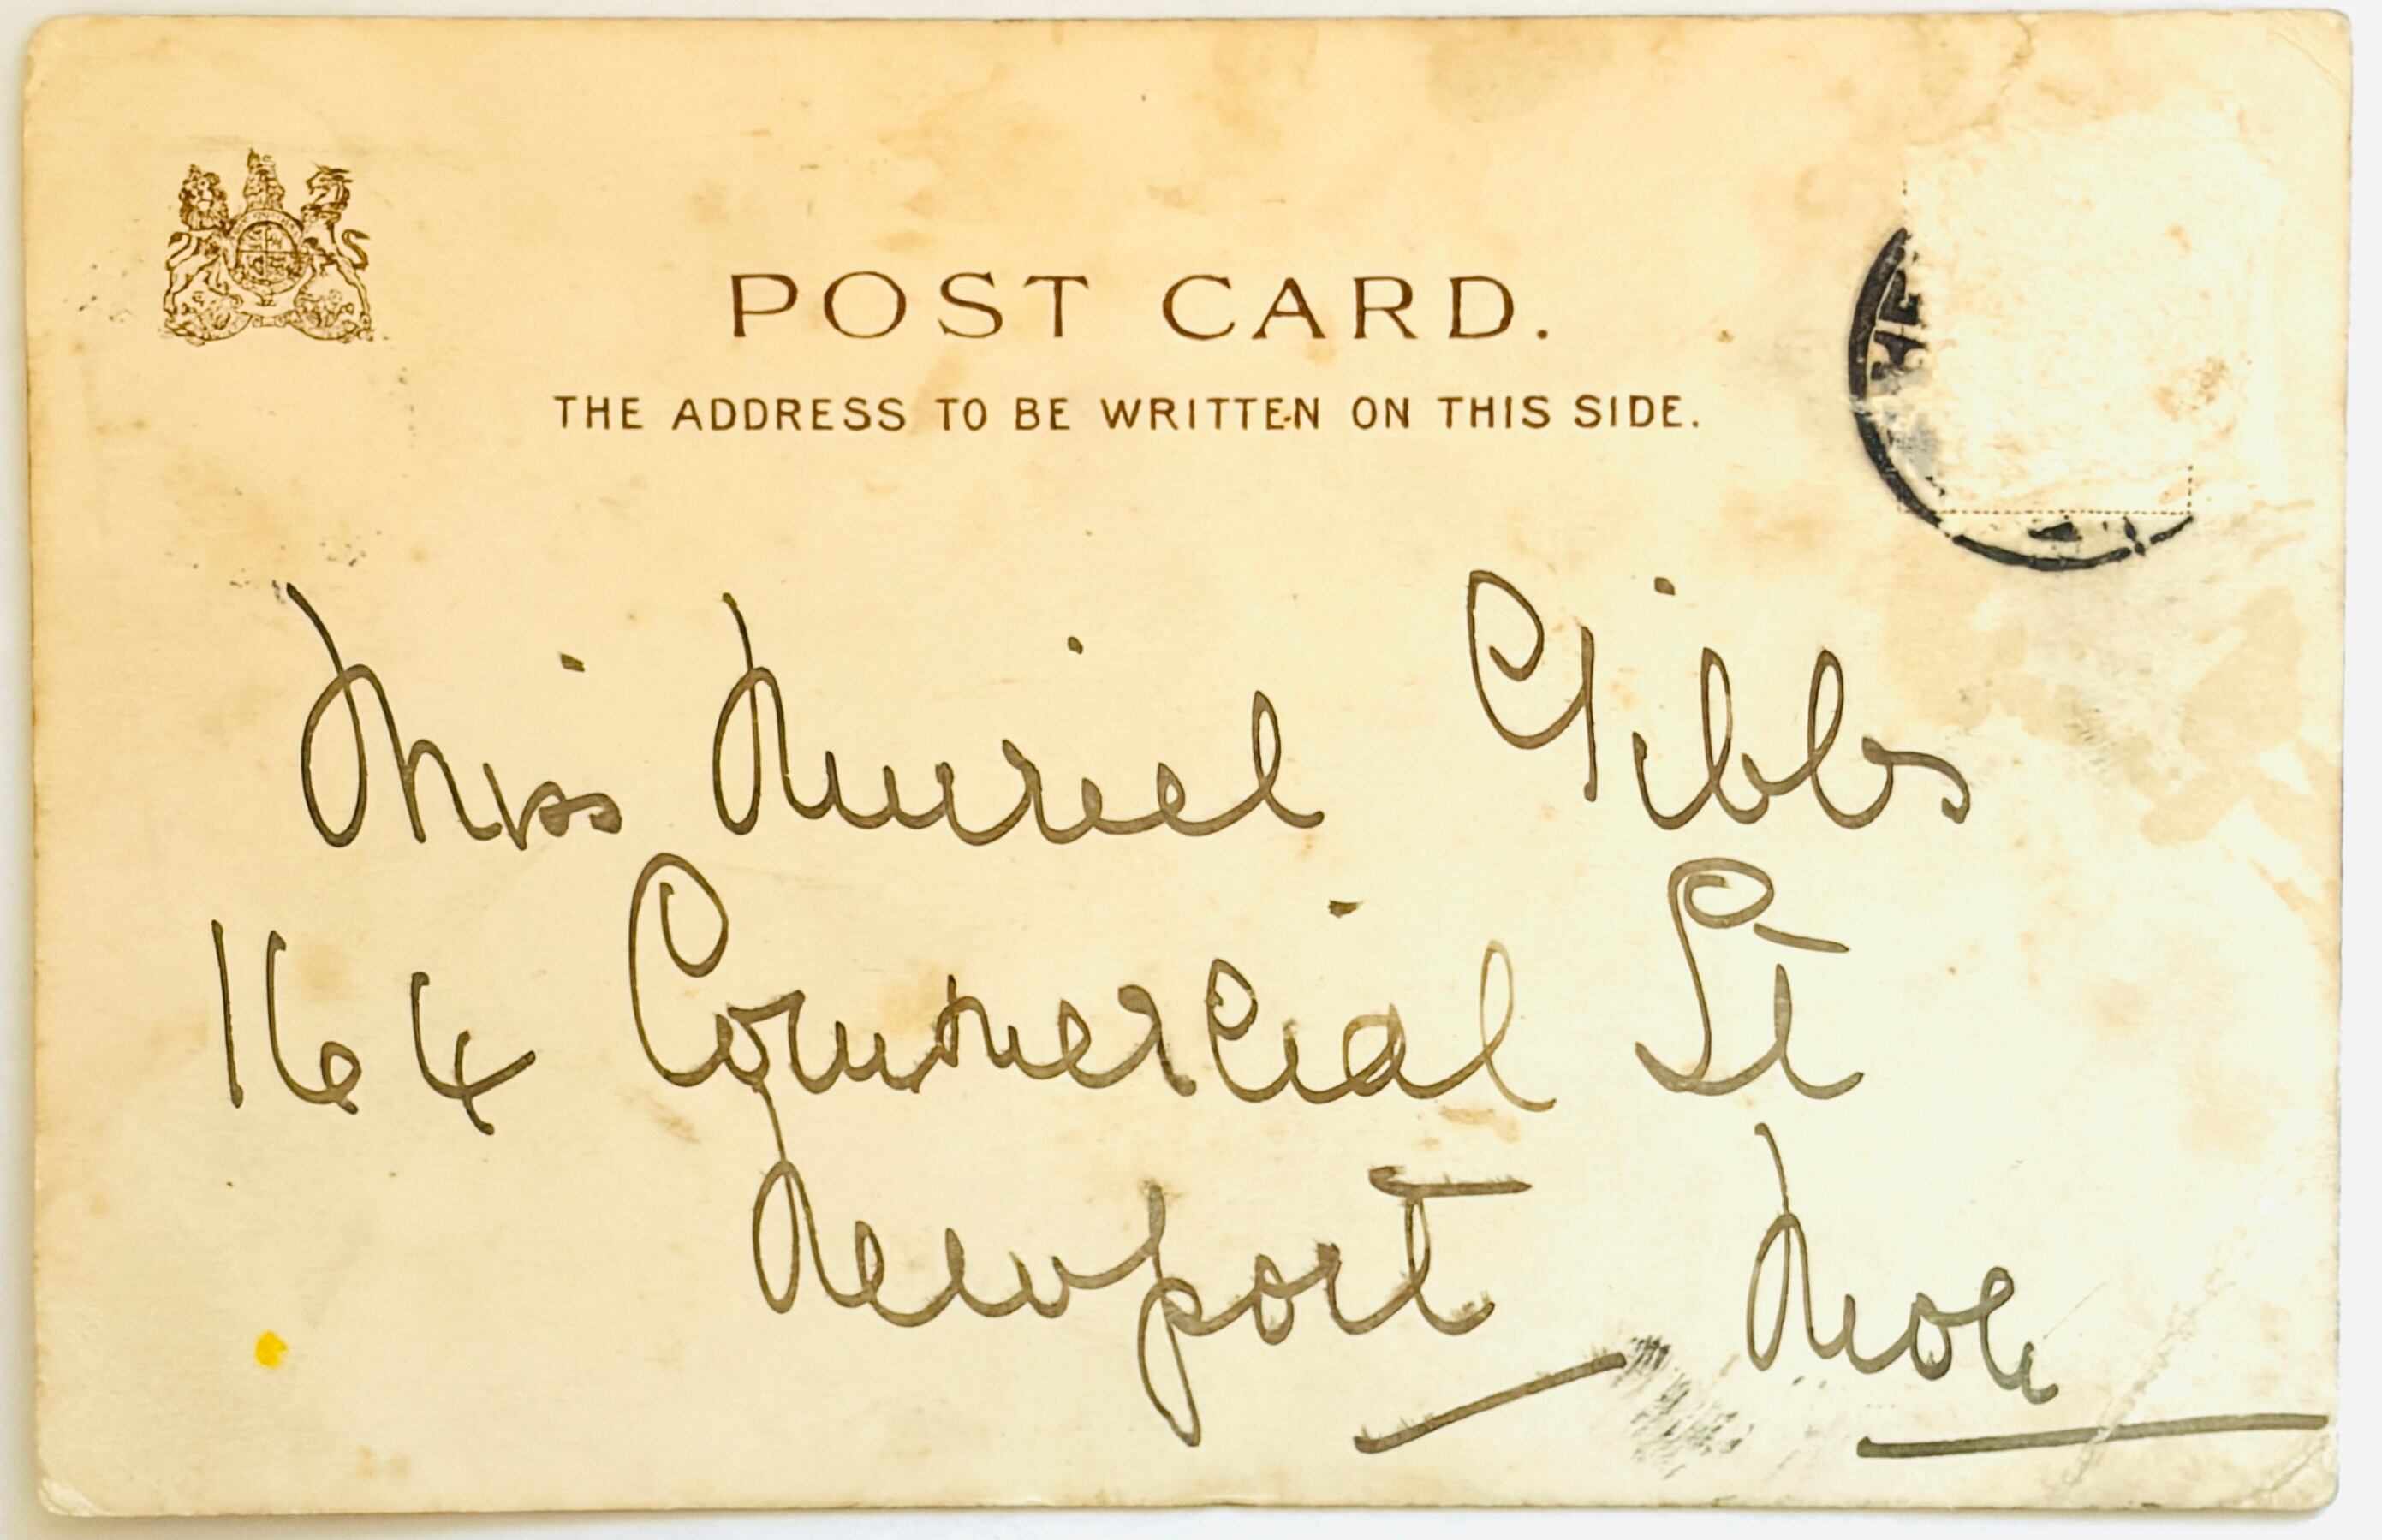 POST CARD.
THE ADDRESS TO BE WRITTEN ON THIS SIDE.
Miss Muriel Gibbs
164 Commercial St
Newport Mon